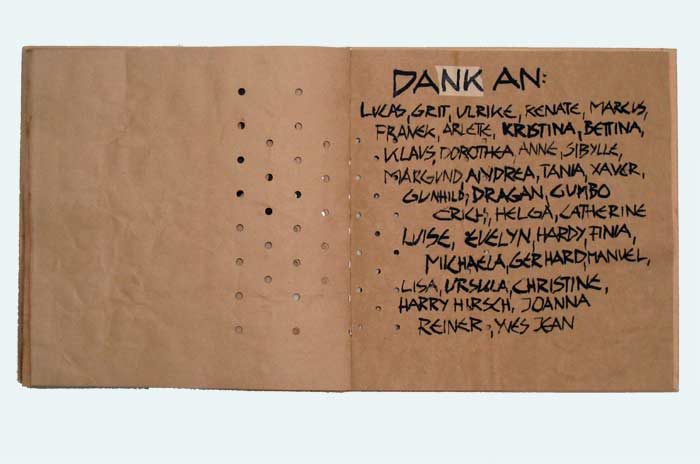 DANK AN:
LUCAS, GRIT, ULRIKE, RENATE, MARCUS,
FRANEK, ARLETTE, KRISTINA, BETTINA,
KLAUS, DOROTHEA, ANNE, SIBYLLE,
MARGUND, ANDREA, TANIA, XAVER,
GUNHILD, DRAGAN, GUMBO
ERICH, HELGA, CATHERINE
LUISE, EVELYN, HARDY, FINIA,
MICHAELA, GERHARD, MANUEL,
LISA, URSULA, CHRISTINE,
HARRY HIRSCH, JOANNA
REINER, YVES JEAN